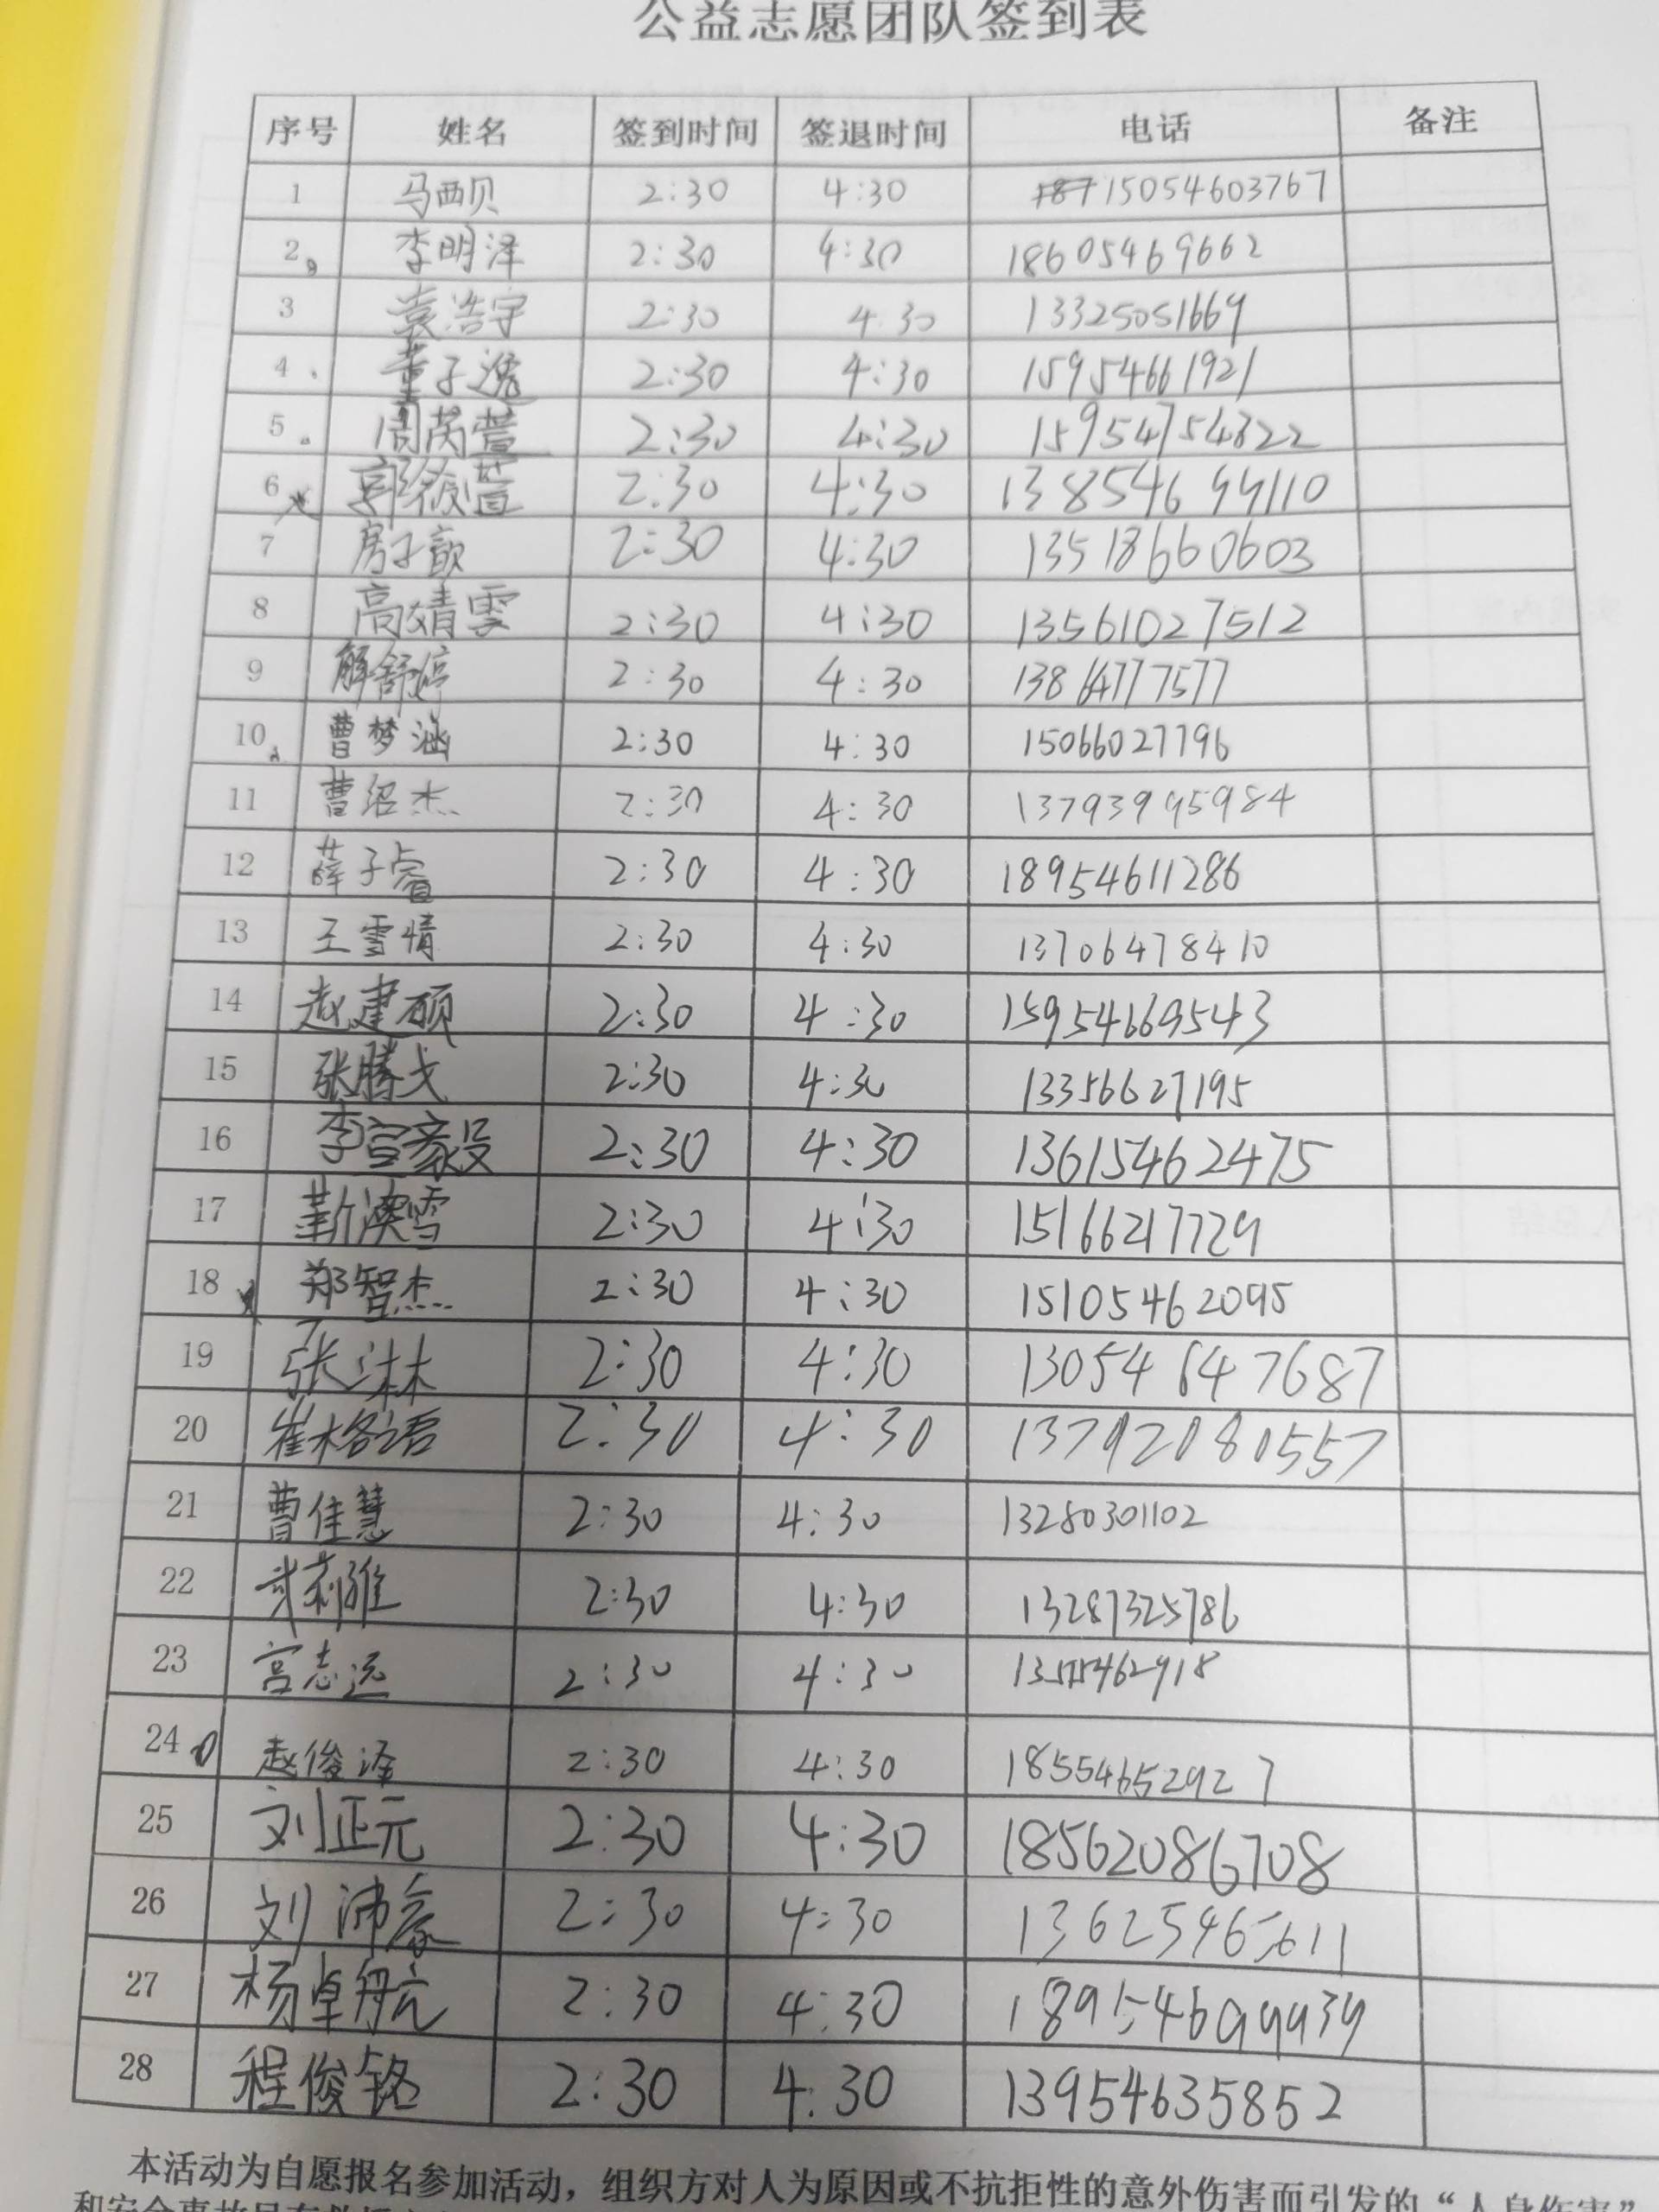 公益志愿团队签到表
序号 姓名 签到时间 签退时间 电话 备注
1 马西贝 2:30 4:30 15054603767
2 李明泽 2:30 4:30 18605469662
3 袁浩宇 2:30 4:30 13325051669
4 董子逸 2:30 4:30 15954661921
5 周芮萱 2:30 4:30 15954754822
6 郭筱萱 2:30 4:30 13854699110
7 房子歆 2:30 4:30 13518660603
8 高婧雯 2:30 4:30 13561027512
9 解舒婷 2:30 4:30 13864777577
10 曹梦涵 2:30 4:30 15066027796
11 曹绍杰 2:30 4:30 13793995984
12 薛子睿 2:30 4:30 18954611286
13 王雪情 2:30 4:30 13706478410
14 赵建硕 2:30 4:30 15954669543
15 张腾戈 2:30 4:30 13356627195
16 李宣毅 2:30 4:30 13615462475
17 靳澳雪 2:30 4:30 15166217729
18 郑智杰 2:30 4:30 15105462095
19 张沐林 2:30 4:30 13054647687
20 崔格语 2:30 4:30 13792080557
21 曹佳慧 2:30 4:30 13280301102
22 2:30 4:30 13287325786
23 宫志远 2:30 4:30
24 赵俊泽 2:30 4:30 18554652927
25 刘正元 2:30 4:30 18562086708
26 刘沛 2:30 4:30 13625465611
27 杨卓航 2:30 4:30 18954699939
28 程俊铭 2:30 4:30 13954635852
本活动为自愿报名参加活动，组织方对人为原因或不抗拒性的意外伤害而引发的“人身伤害”